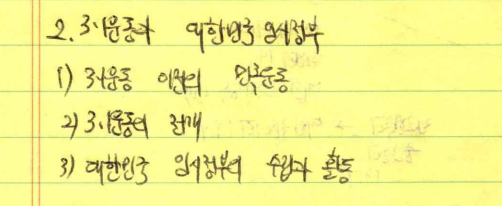 2. 3·1운동과 대한민국 임시정부
1) 3·1운동 이전의 민족운동
2) 3·1운동의 전개
3) 대한민국 임시정부의 수립과 활동